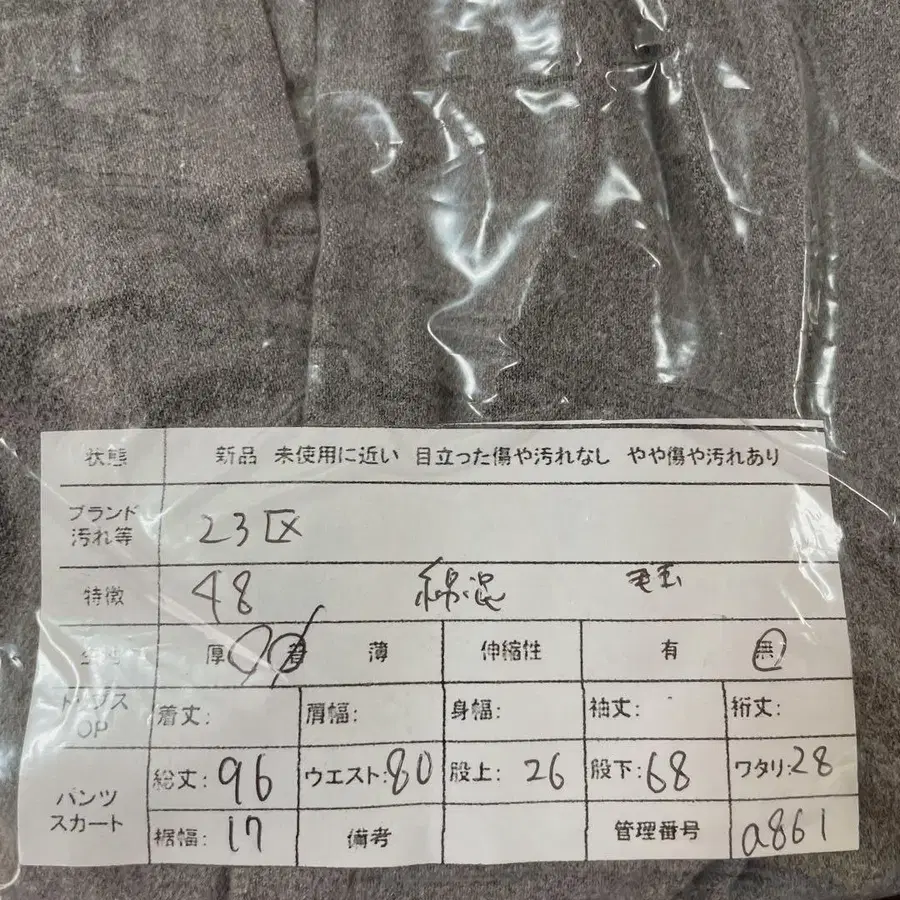 状態 新品 未使用に近い 目立った傷や汚れなし やや傷や汚れあり
ブランド
汚れ等 23区
特徴 48 綿混 毛玉
厚 薄 伸縮性 有 無
トップス
OP 着丈: 肩幅: 身幅: 袖丈: 裄丈:
パンツ
スカート 総丈:96 ウエスト:80 股上: 26 股下:68 ワタリ:28
裾幅: 17 備考 管理番号 a861